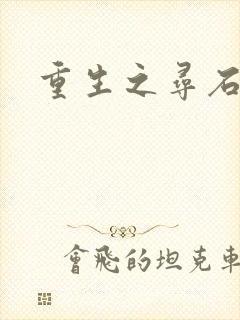 重生之尋石
會飛的坦克車